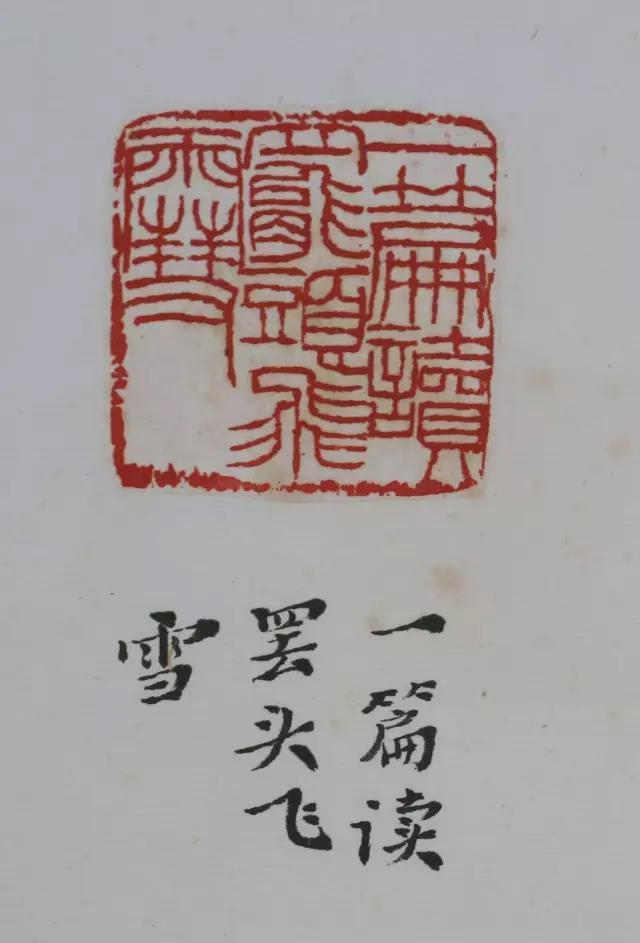 一篇讀
罷頭飛
雪
一篇读
罢头飞
雪